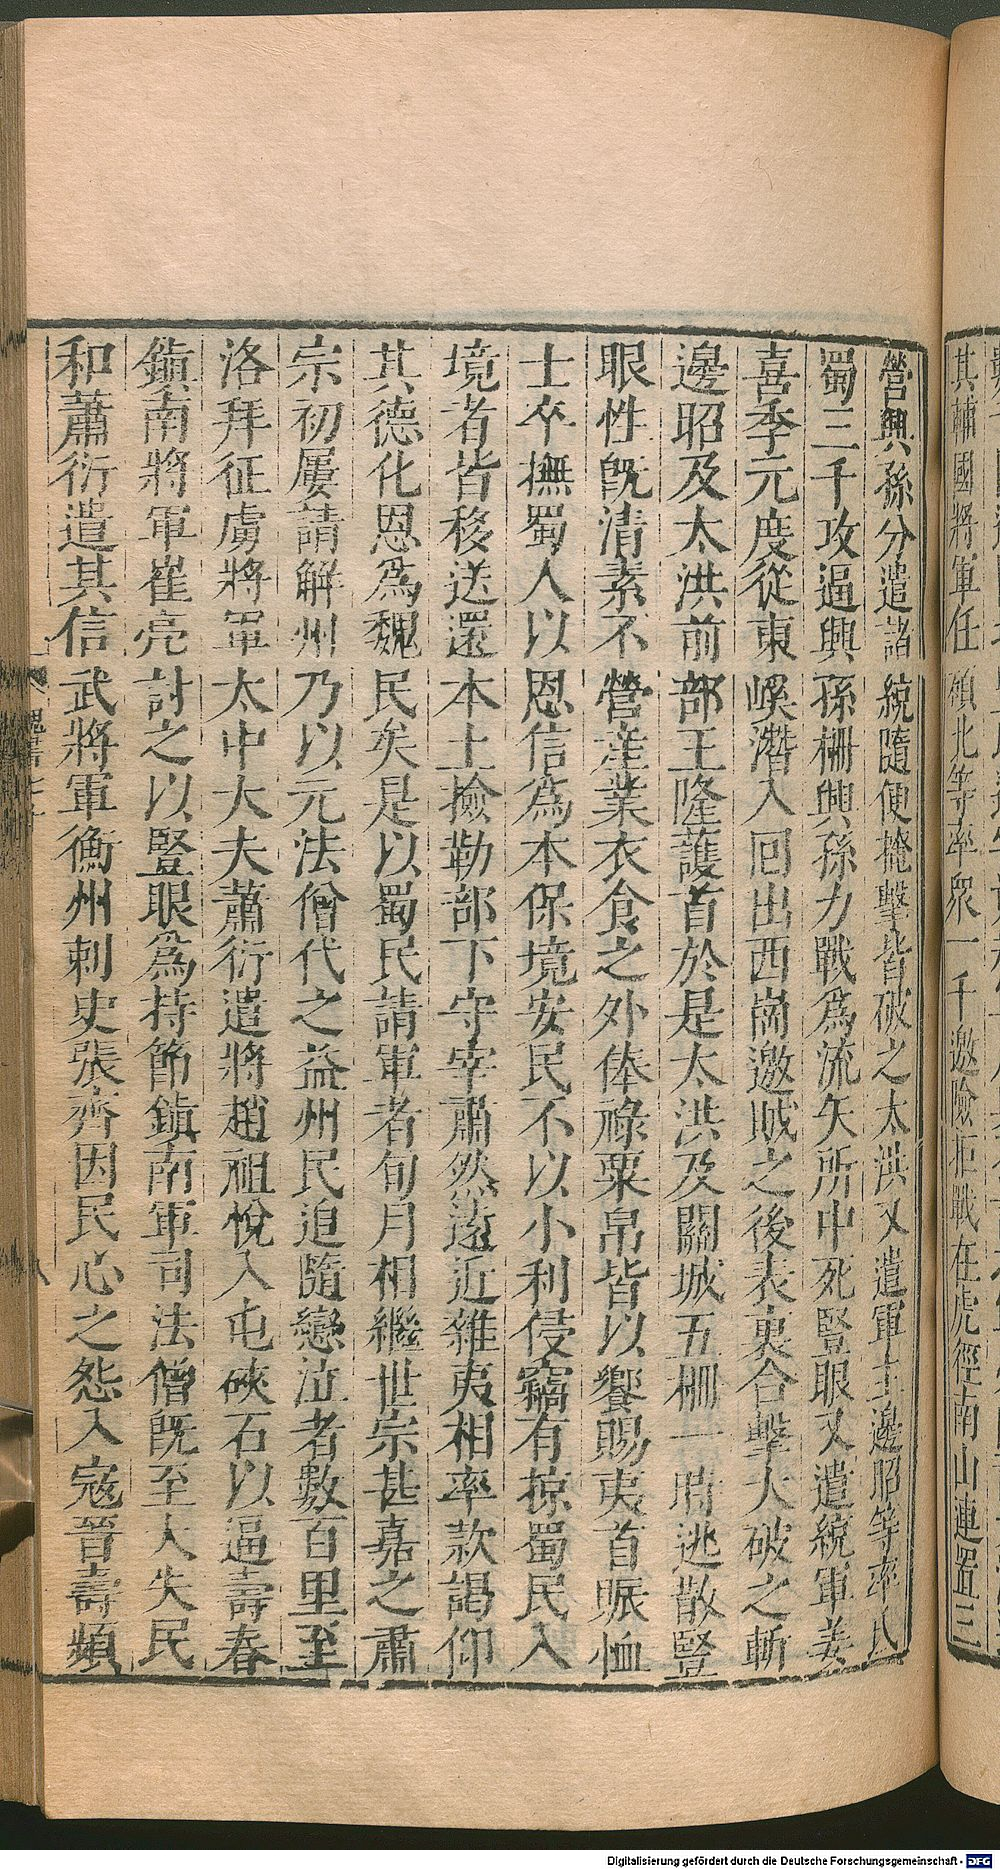 其輔國將軍任碩北等率眾一千邀險拒戰在虎徑南山連置三
營興孫分遣諸統隨便掩擊皆破之太洪又遣軍主邊昭等率氐
蜀三千攻逼興孫柵興孫力戰爲流矢所中死豎眼又遣統軍姜
喜季元度從東嶮潛入回出西崗邀賊之後表裏合擊大破之斬
邊昭及太洪前部王隆護首於是太洪及關城五柵一時逃散豎
眼性旣清素不營產業衣食之外俸祿粟帛皆以饗賜夷首賑恤
士卒撫蜀人以恩信爲本保境安民不以小利侵竊有掠蜀民入
境者皆移送還本土撿勒部下守宰肅然遠近雜夷相率款謁仰
其德化恩爲魏民矣是以蜀民請軍者旬月相繼世宗甚嘉之肅
宗初屢請解州乃以元法僧代之益州民追隨戀泣者數百里至
洛拜征虜將軍太中大夫蕭衍遣將趙祖悅入屯硤石以逼壽春
鎮南將軍崔亮討之以豎眼爲持節鎮南軍司法僧旣至大失民
和蕭衍遣其信武將軍衡州刺史張齊因民心之怨入寇晉壽頻
Digitalisierung gefördert durch die Deutsche Forschungsgemeinschaft - DFG